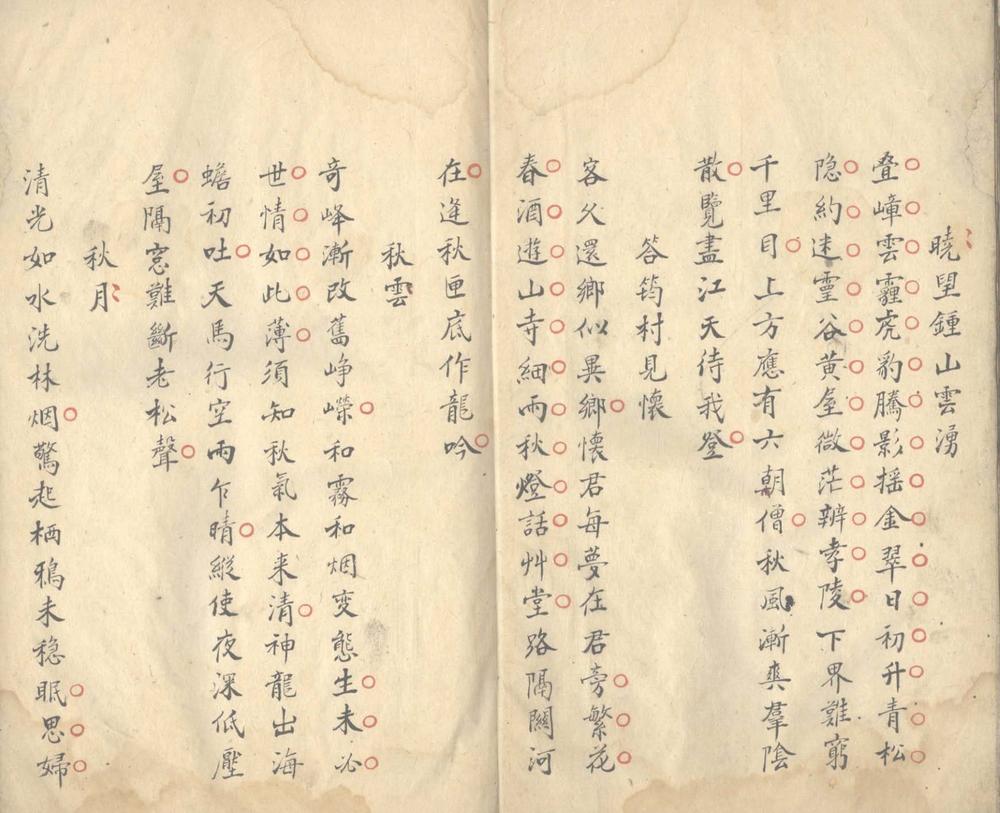 曉望鍾山雲湧
叠嶂雲霾虎豹騰影揺金翠日初升青松
隐約迷靈谷黄屋微茫辨孝陵下界難窮
千里目上方應有六朝僧秋風漸爽羣陰
散覽盡江天待我登
答筠村見懷
客久還鄉似異鄉懷君每夢在君旁繁花
春酒遊山寺細雨秋燈話艸堂路隔關河
在逢秋匣底作龍吟
秋雲
奇峰漸改舊崢嶸和霧和烟变態生未必
世情如此薄須知秋氣本来清神龍出海
蟾初吐天馬行空雨乍晴縱使夜深低壓
屋隔窓難斷老松聲
秋月
清光如水洗林烟驚起栖鴉未穏眠思婦